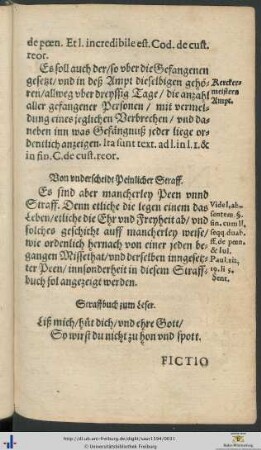 de pœn. Et l. incredibile est. Cod. de cust.
reor.
Es soll auch der/ so vber die Gefangenen
gesetzt/ vnd in deß Ampt dieselbigen gehö-
ren/ allweg vber dreyssig Tage/ die anzahl
aller gefangener Personen/ mit vermel-
dung eines jeglichen Verbrechen/ vnd da-
neben inn was Gefängnuß jeder liege or-
dentlich anzeigen. Ita sunt text. ad l. in l. 1. &
in fin. C. de cust. reor.
Kercker-
meisters
Ampt.
Von vnderscheidt Peinlicher Straff.
Es sind aber mancherley Peen vnnd
Straff. Denn etliche die legen einem das
Leben/ etliche die Ehr vnd Freyheit ab/ vnd
solches geschicht auff mancherley weise/
wie ordenlich hernach von einer jeden be-
gangen Missethat/ vnd derselben inngesetz-
ter Peen/ innsonderheit in diesem Straff-
buch sol angezeigt werden.
Vide l. ab-
sentem §.
fin. cum ll.
seqq duab.
ff. de pœn.
& Iul.
Paul. tit.
19. li 5.
Sent.
Straffbuch zum Leser.
Liß mich/ hüt dich/ vnd ehre Gott/
So wirst du nicht zu hon vnd spott.
FICTIO